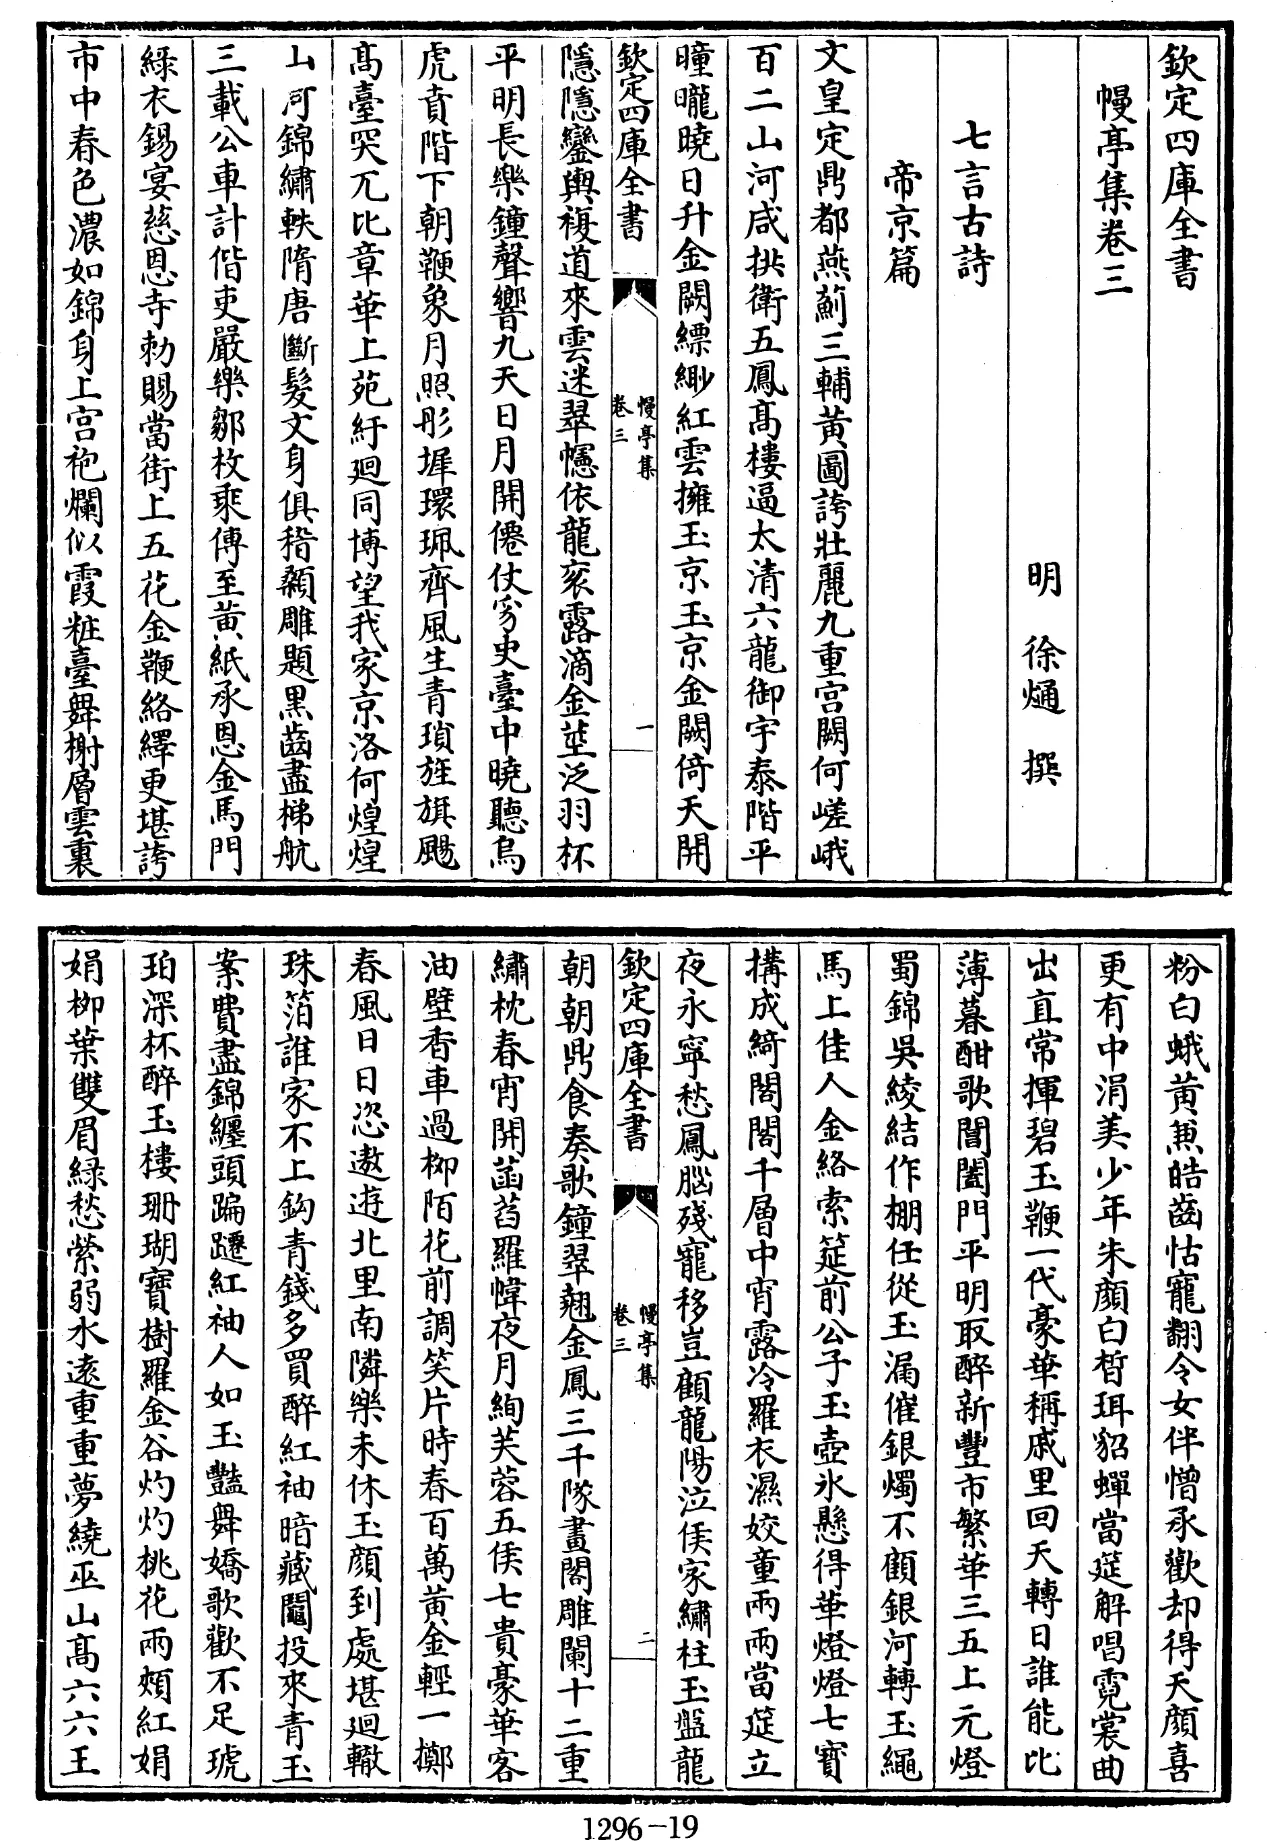 欽定四庫全書
幔亭集卷三
明 徐熥 撰
七言古詩
帝京篇
文皇定鼎都燕薊三輔黃圖誇壯麗九重宮闕何嵯峨
百二山河咸拱衛五鳳髙樓逼太清六龍御宇泰階平
曈曨曉日升金闕縹緲紅雲擁玉京玉京金闕倚天開
欽定四庫全書
幔亭集
卷三
一
隱隱鑾輿複道來雲迷翠幰依龍衮露滴金莖泛羽杯
平明長樂鐘聲響九天日月開僊仗豸史臺中曉聽烏
虎賁階下朝鞭象月照彤墀環珮齊風生青瑣旌旗颺
髙臺突兀比章華上苑紆迴同博望我家京洛何煌煌
山河錦繡軼隋唐斷髮文身俱稽顙雕題黒齒盡梯航
三載公車計偕吏嚴樂鄒枚乘傳至黃紙承恩金馬門
緑衣錫宴慈恩寺勅賜當街上五花金鞭絡繹更堪誇
市中春色濃如錦身上宮袍爛似霞粧臺舞榭層雲裏
粉白蛾黃兼皓齒怙寵翻令女伴憎承歡却得天顔喜
更有中涓美少年朱顔白皙珥貂蟬當筵解唱霓裳曲
出直常揮碧玉鞭一代豪華稱戚里回天轉日誰能比
薄暮酣歌閶闔門平明取醉新豐市繁華三五上元燈
蜀錦吳綾結作棚任從玉漏催銀燭不顧銀河轉玉繩
馬上佳人金絡索筵前公子玉壺氷懸得華燈燈七寳
搆成綺閣閣千層中宵露冷羅衣濕姣童兩兩當筵立
夜永寧愁鳳腦殘寵移豈顧龍陽泣侯家繡柱玉盤龍
欽定四庫全書
幔亭集
卷三
二
朝朝鼎食奏歌鐘翠翹金鳳三千隊畫閣雕闌十二重
繡枕春宵開菡萏羅幃夜月絢芙蓉五侯七貴豪華客
油壁香車過柳陌花前調笑片時春百萬黃金輕一擲
春風日日恣遨遊北里南隣樂未休玉顔到處堪迴轍
珠箔誰家不上鈎青錢多買醉紅袖暗藏鬮投來青玉
案費盡錦纏頭蹁躚紅袖人如玉豔舞嬌歌歡不足琥
珀深杯醉玉樓珊瑚寶樹羅金谷灼灼桃花兩頰紅娟
娟柳葉雙眉緑愁縈弱水逺重重夢繞巫山髙六六王
1296-19